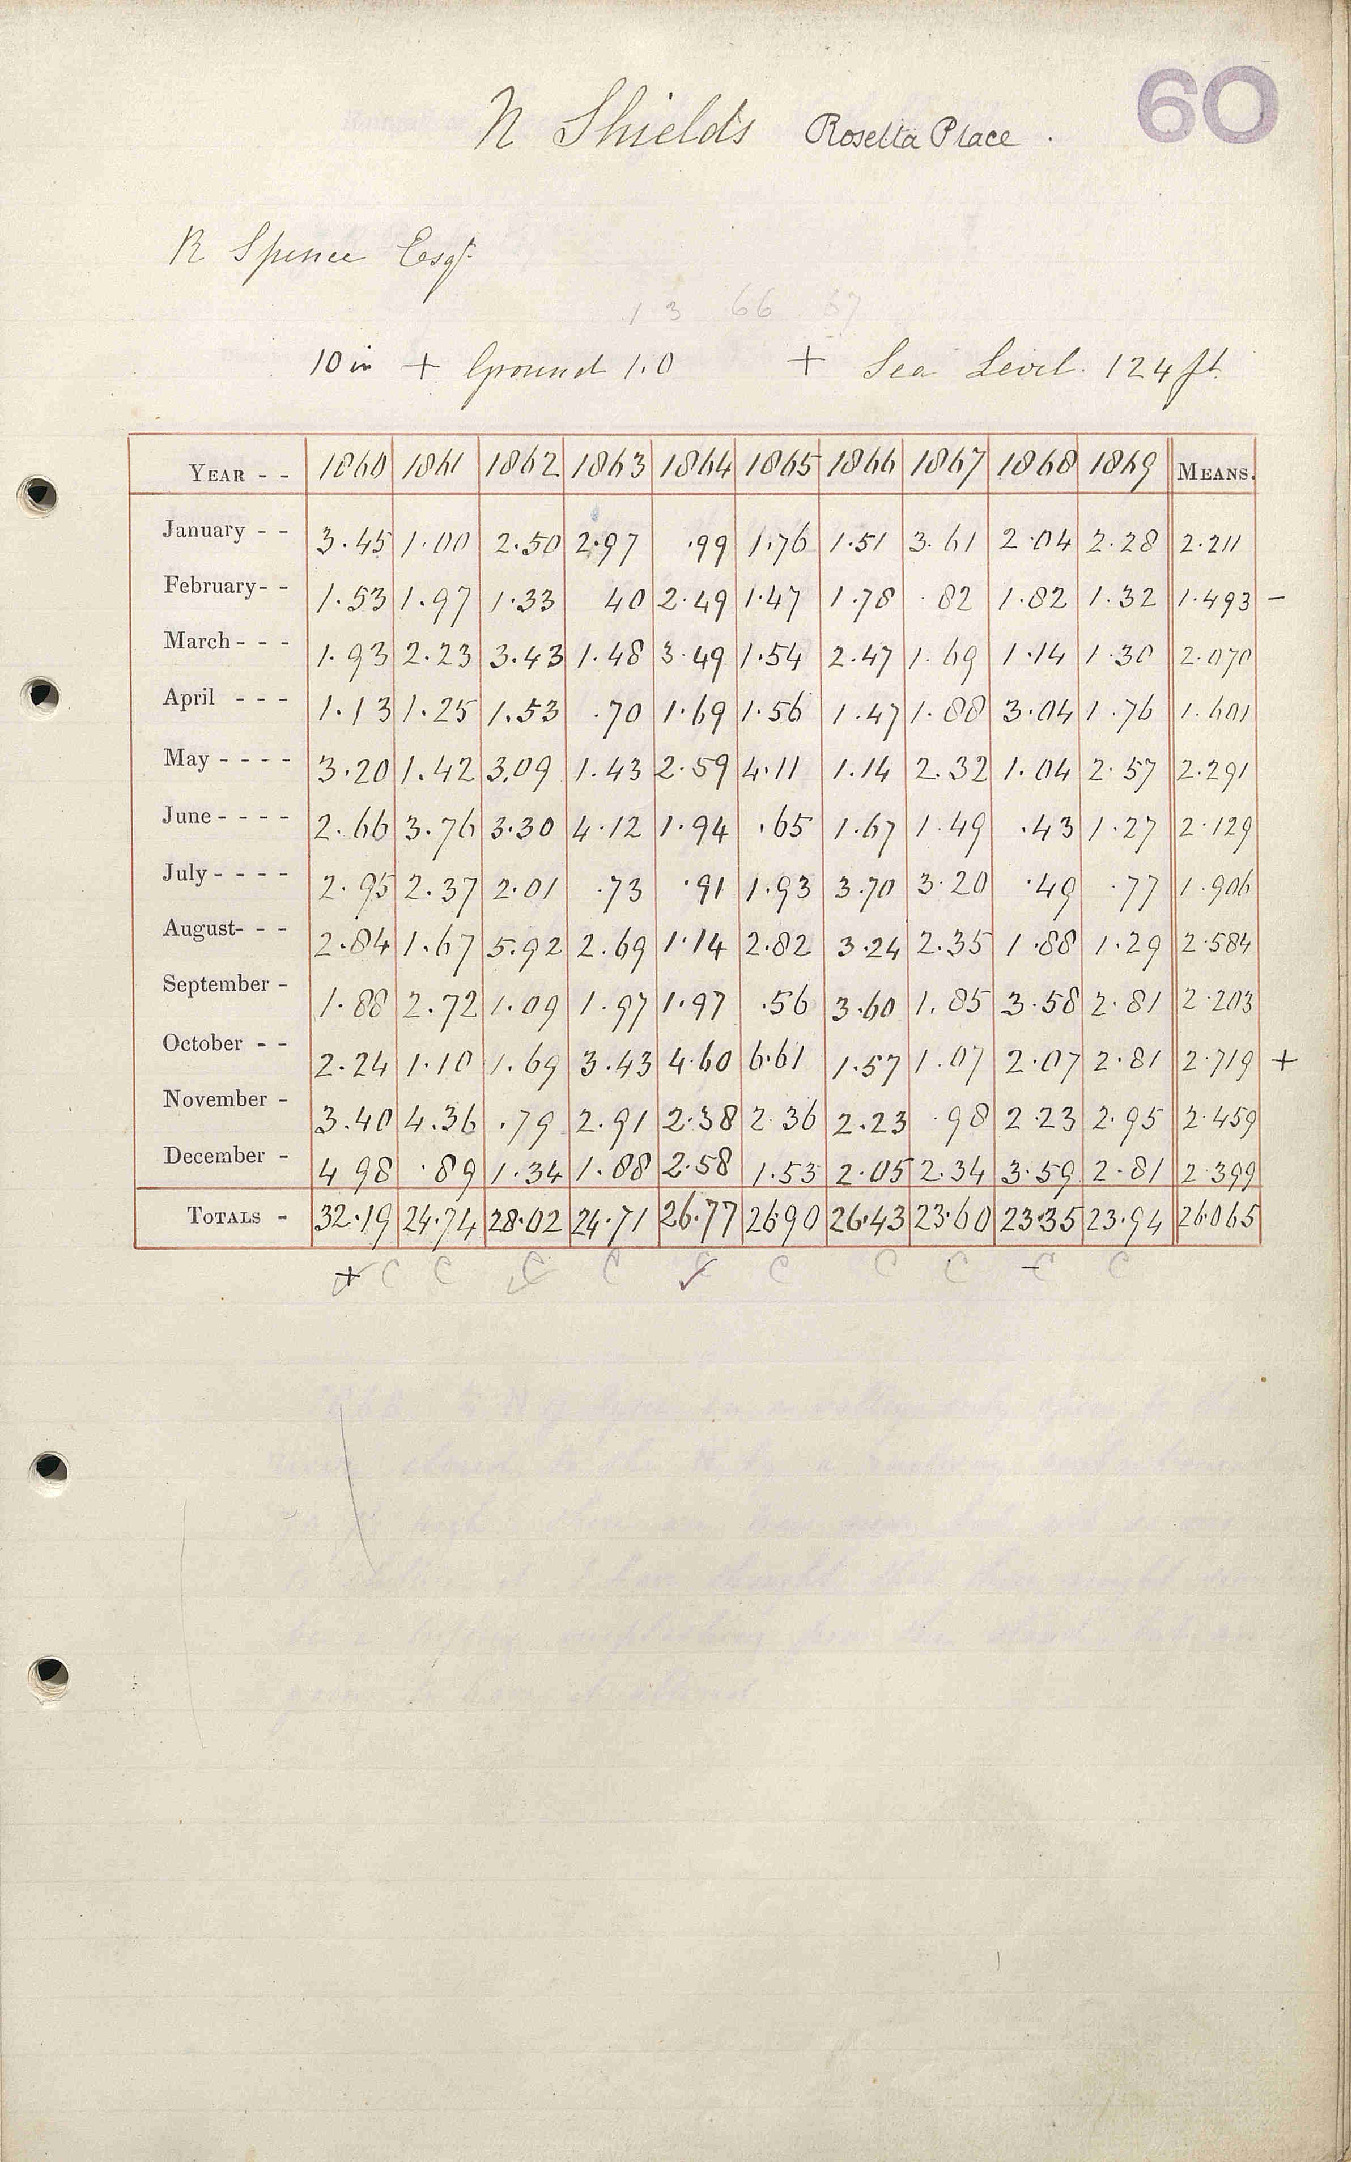 60
N Shields Rosella Place .
R Spence Esqr
1 3 66 67
10 in + Ground 1.0 + Sea Level. 124 ft.
YEAR - - 1860 1861 1862 1863 1864 1865 1866 1867 1868 1869 MEANS.
January - - 3.45 1.00 2.50 2.97 .99 1.76 1.51 3.61 2.04 2.28 2.211
February- - 1.53 1.97 1.33 40 2.49 1.47 1.78 .82 1.82 1.32 1.493 -
March - - - 1.93 2.23 3.43 1.48 3.49 1.54 2.47 1.69 1.14 1.30 2.070
April - - - 1.13 1.25 1.53 .70 1.69 1.56 1.47 1.88 3.04 1.76 1.601
May - - - - 3.20 1.42 3.09 1.43 2.59 4.11 1.14 2.32 1.04 2.57 2.291
June - - - - 2.66 3.76 3.30 4.12 1.94 .65 1.67 1.49 .43 1.27 2.129
July - - - - 2.95 2.37 2.01 .73 .91 1.93 3.70 3.20 .49 .77 1.906
August- - - 2.84 1.67 5.92 2.69 1.14 2.82 3.24 2.35 1.88 1.29 2.584
September - 1.88 2.72 1.09 1.97 1.97 .56 3.60 1.85 3.58 2.81 2.203
October - - 2.24 1.10 1.69 3.43 4.60 6.61 1.57 1.07 2.07 2.81 2.719 +
November - 3.40 4.36 .79 2.91 2.38 2.36 2.23 .98 2.23 2.95 2.459
December - 4 98 .89 1.34 1.88 2.58 1.53 2.05 2.34 3.59 2.81 2.399
TOTALS - 32.19 24.74 28.02 24.71 26.77 26.90 26.43 23.60 23.35 23.94 26.065
+ C C C C C C C C - C C